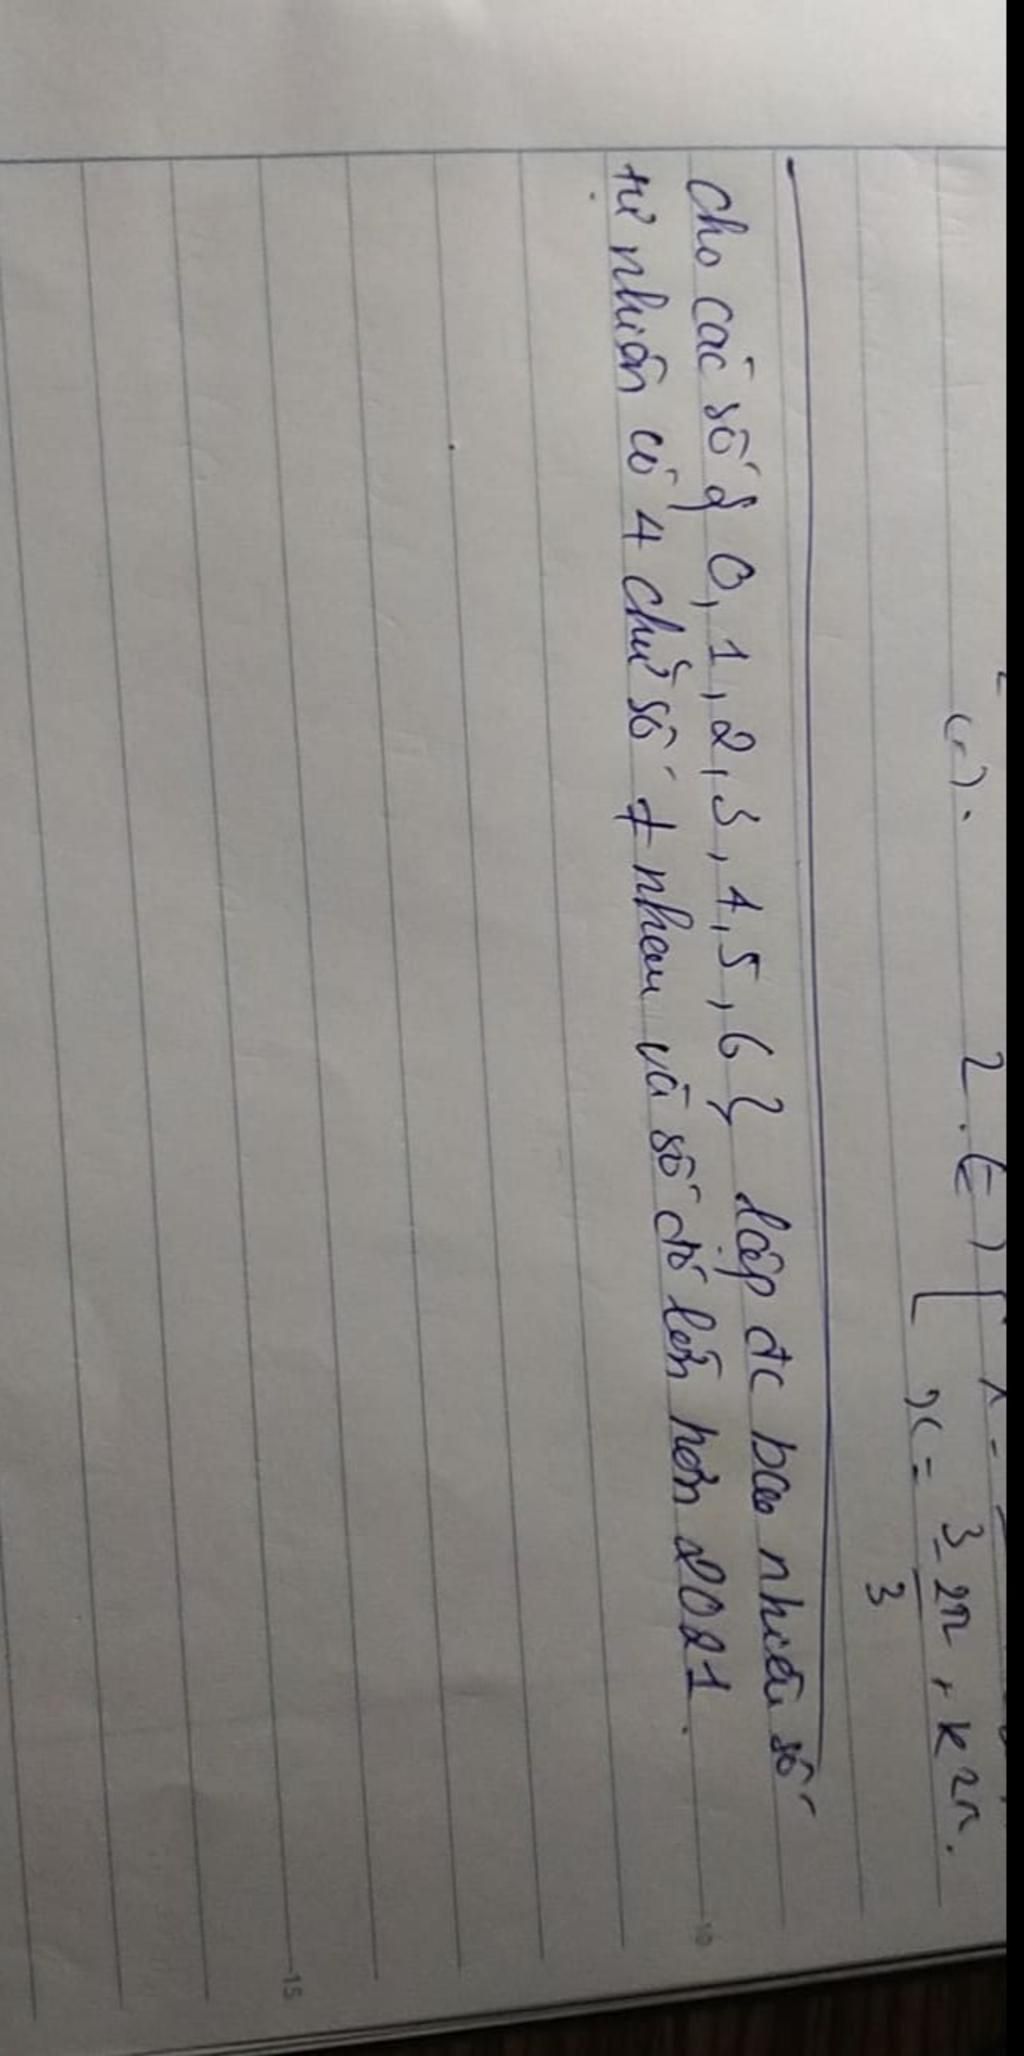 2.E) [ x =
(n).
x = 3-2π/3 + k2π.
Cho các số { 0, 1, 2, 3, 4, 5, 6 } lập đc bao nhiêu số
tự nhiên có 4 chữ số ≠ nhau và số đó lớn hơn 2021.
10
15